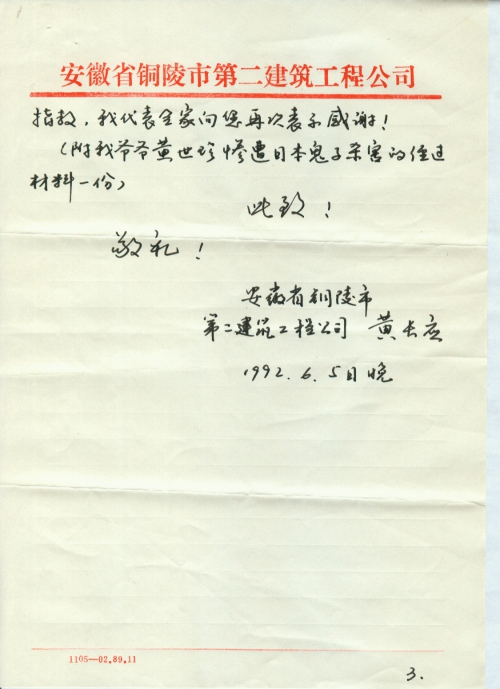 安徽省铜陵市第二建筑工程公司
指教，我代表全家向您再次表示感谢！
（附我爷爷黄世珍惨遭日本鬼子杀害的经过
材料一份）
此致！
敬礼！
安徽省铜陵市
第二建筑工程公司 黄长应
1992.6.5日晚
1105—02.89.11
3.